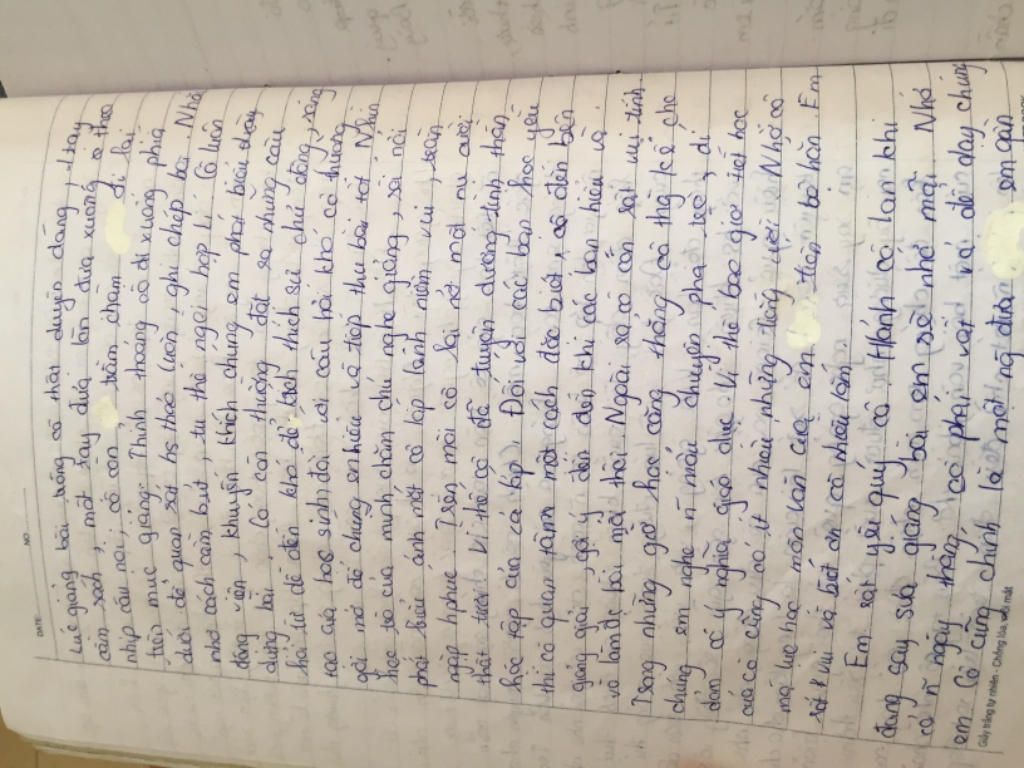 DATE: NO.
Lúc giảng bài trông cô thật duyên dáng, 1 tay
cầm sách, một tay đưa lên đưa xuống theo
nhịp câu nói, cô còn tấm chấm đi lại
trên mục giảng. Thỉnh thoảng cô đi xuống phía
dưới để quan sát hs thảo luận, ghi chép bài. Nhắc
nhở cách cầm bút, tư thế ngồi hợp lí. Cô luôn
động viên, khuyến khích chúng em phát biểu xây
dựng bài. Cô còn thường đặt ra những câu
hỏi từ dễ đến khó để kích thích sự chủ động, sáng
tạo của học sinh đối với câu hỏi khó cô thường
gợi mở để chúng em hiểu và tiếp thu bài tốt. Nhìn
học trò của mình chăm chú nghe giảng, sôi nổi
phát biểu ánh mắt cô lấp lánh niềm vui, tràn
ngập h phúc. Trên môi cô lại nở một nụ cười
thật tươi. Vì thế cô đã tuyên dương tinh thần
học tập của cả lớp. Đối với các bạn học yếu
thì cô quan tâm một cách đặc biệt, cô đến bên
giảng giải, gợi ý dần dần khi các bạn hiểu và
và làm đc bài mới thôi. Ngoài ra cô còn rất vui tính.
Trong những giờ học căng thẳng cô thg kể cho
chúng em nghe n mẩu chuyện pha trò, dí
dỏm có ý nghĩa giáo dục. Vì thế bao giờ tiết học
của cô cũng có ít nhiều những tiếng cười. Nhờ cô
mà lực học môn văn của em tiến bộ hơn. Em
sẽ lưu và biết ơn cô nhiều lắm.
Em rất yêu quý cô. Hình cô Lam khi
đang say sưa giảng bài em sẽ nhớ mãi. Nhớ
cả n ngày tháng cô phải vất vả để dạy chúng
em. Cô cũng chính là một ng đưa em cần
Giấy trắng tự nhiên - Chống lóa, mỏi mắt